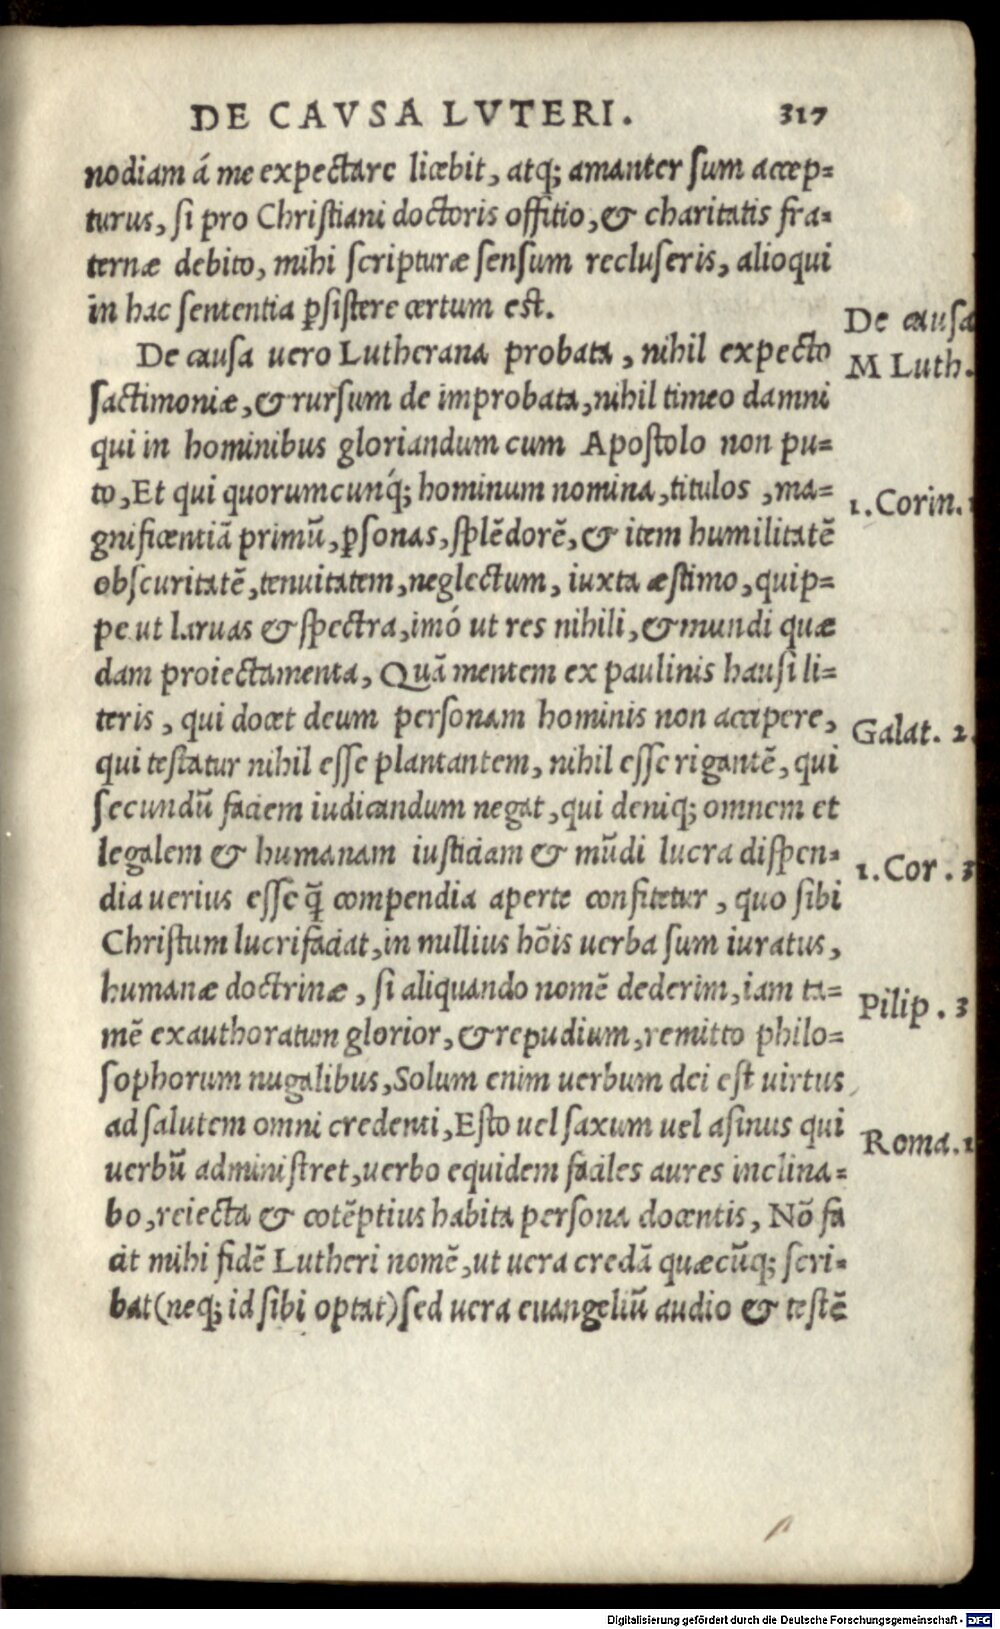 DE CAVSA LVTERI. 317
nodiam á me expectare licebit, atq; amanter sum accep=
turus, si pro Christiani doctoris offitio, & charitatis fra=
ternæ debito, mihi scripturæ sensum recluseris, alioqui
in hac sententia p̱sistere certum est.
De causa
De causa uero Lutherana probata, nihil expecto
M Luth.
sactimoniæ, & rursum de improbata, nihil timeo damni
qui in hominibus gloriandum cum Apostolo non pu=
to, Et qui quorumcunq́; hominum nomina, titulos, ma=
1. Corin. 1
gnificentiā primū, p̱sonas, splēdorē, & item humilitatē
obscuritatē, tenuitatem, neglectum, iuxta æstimo, quip=
pe ut laruas & spectra, imó ut res nihili, & mundi quæ
dam proiectamenta, Quā mentem ex paulinis hausi li=
teris, qui docet deum personam hominis non accipere,
Galat. 2.
qui testatur nihil esse plantantem, nihil esse rigantē, qui
secundū faciem iudicandum negat, qui deniq; omnem et
legalem & humanam iusticiam & mūdi lucra dispen=
1. Cor. 3
dia uerius esse q̄ compendia aperte confitetur, quo sibi
Christum lucrifaciat, in nullius hōis uerba sum iuratus,
humanæ doctrinæ, si aliquando nomē dederim, iam ta=
Pilip. 3
mē exauthoratum glorior, & repudium, remitto philo=
sophorum nugalibus, Solum enim uerbum dei est uirtus
ad salutem omni credenti, Esto uel saxum uel asinus qui
Roma. 1
uerbū administret, uerbo equidem faciles aures inclina=
bo, reiecta & cotēptius habita persona docentis, Nō fa
cit mihi fidē Lutheri nomē, ut uera credā quæcūq; scri=
bat (neq; id sibi optat) sed uera euangeliū audio & testē
Digitalisierung gefördert durch die Deutsche Forschungsgemeinschaft - DFG